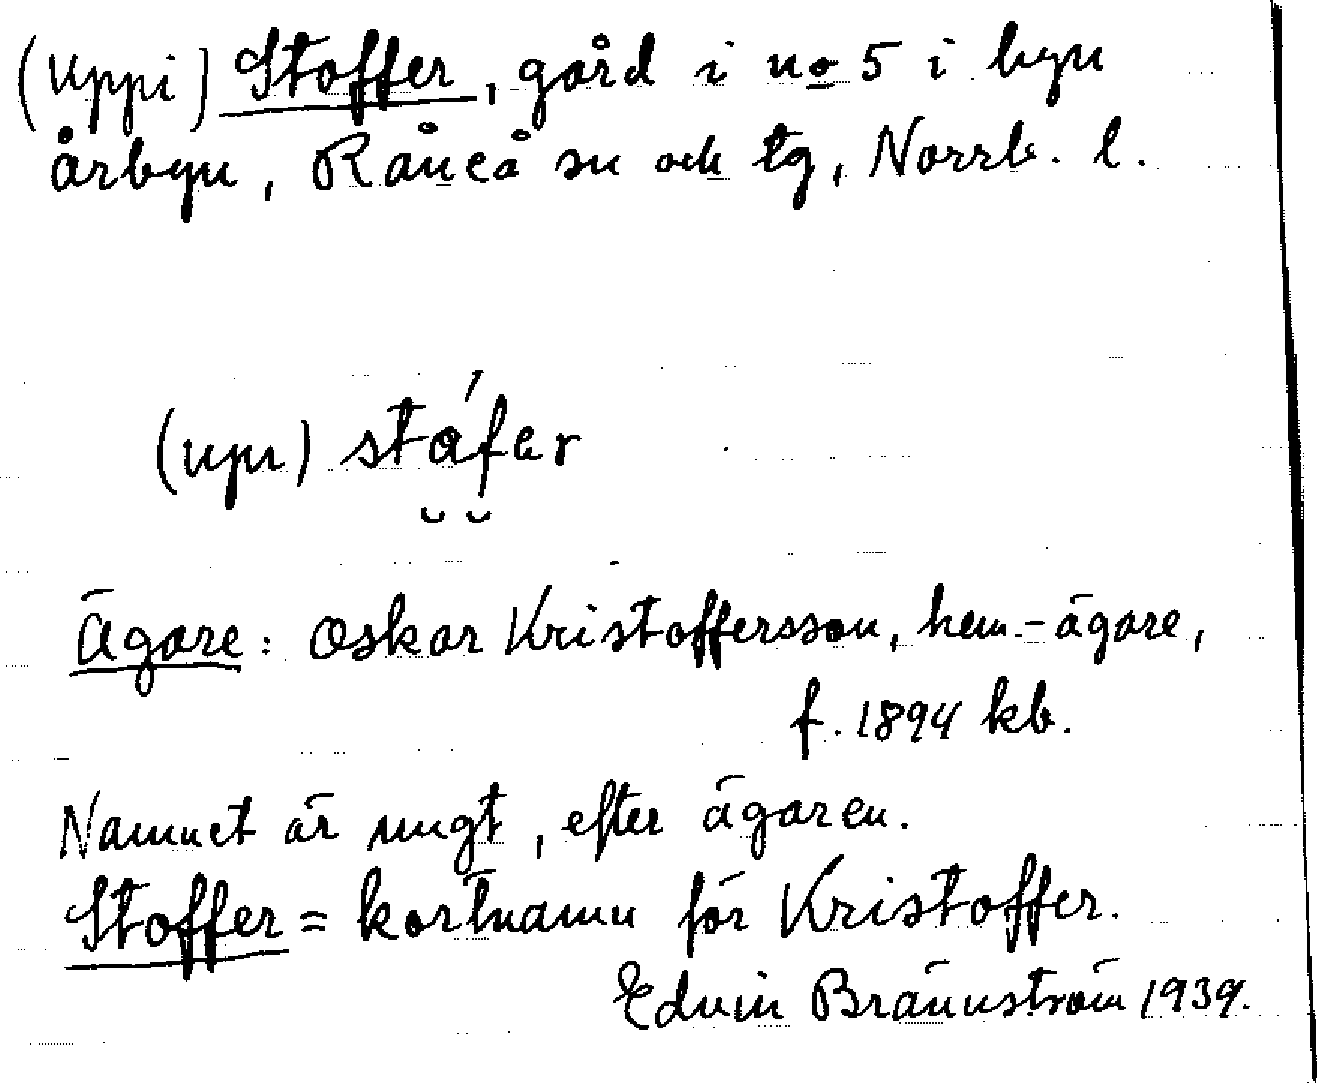 (Uppi) Stoffer, gård i no 5 i byn
Årbyn, Råneå sn och tg, Norrb. l.
(upı) stáfer
Ägare: Oskar Kristoffersson, hem.-ägare,
f. 1894 kb.
Namnet är nugt, efter ägaren.
Stoffer = kortnamn för Kristoffer.
Edvin Brännström 1939.